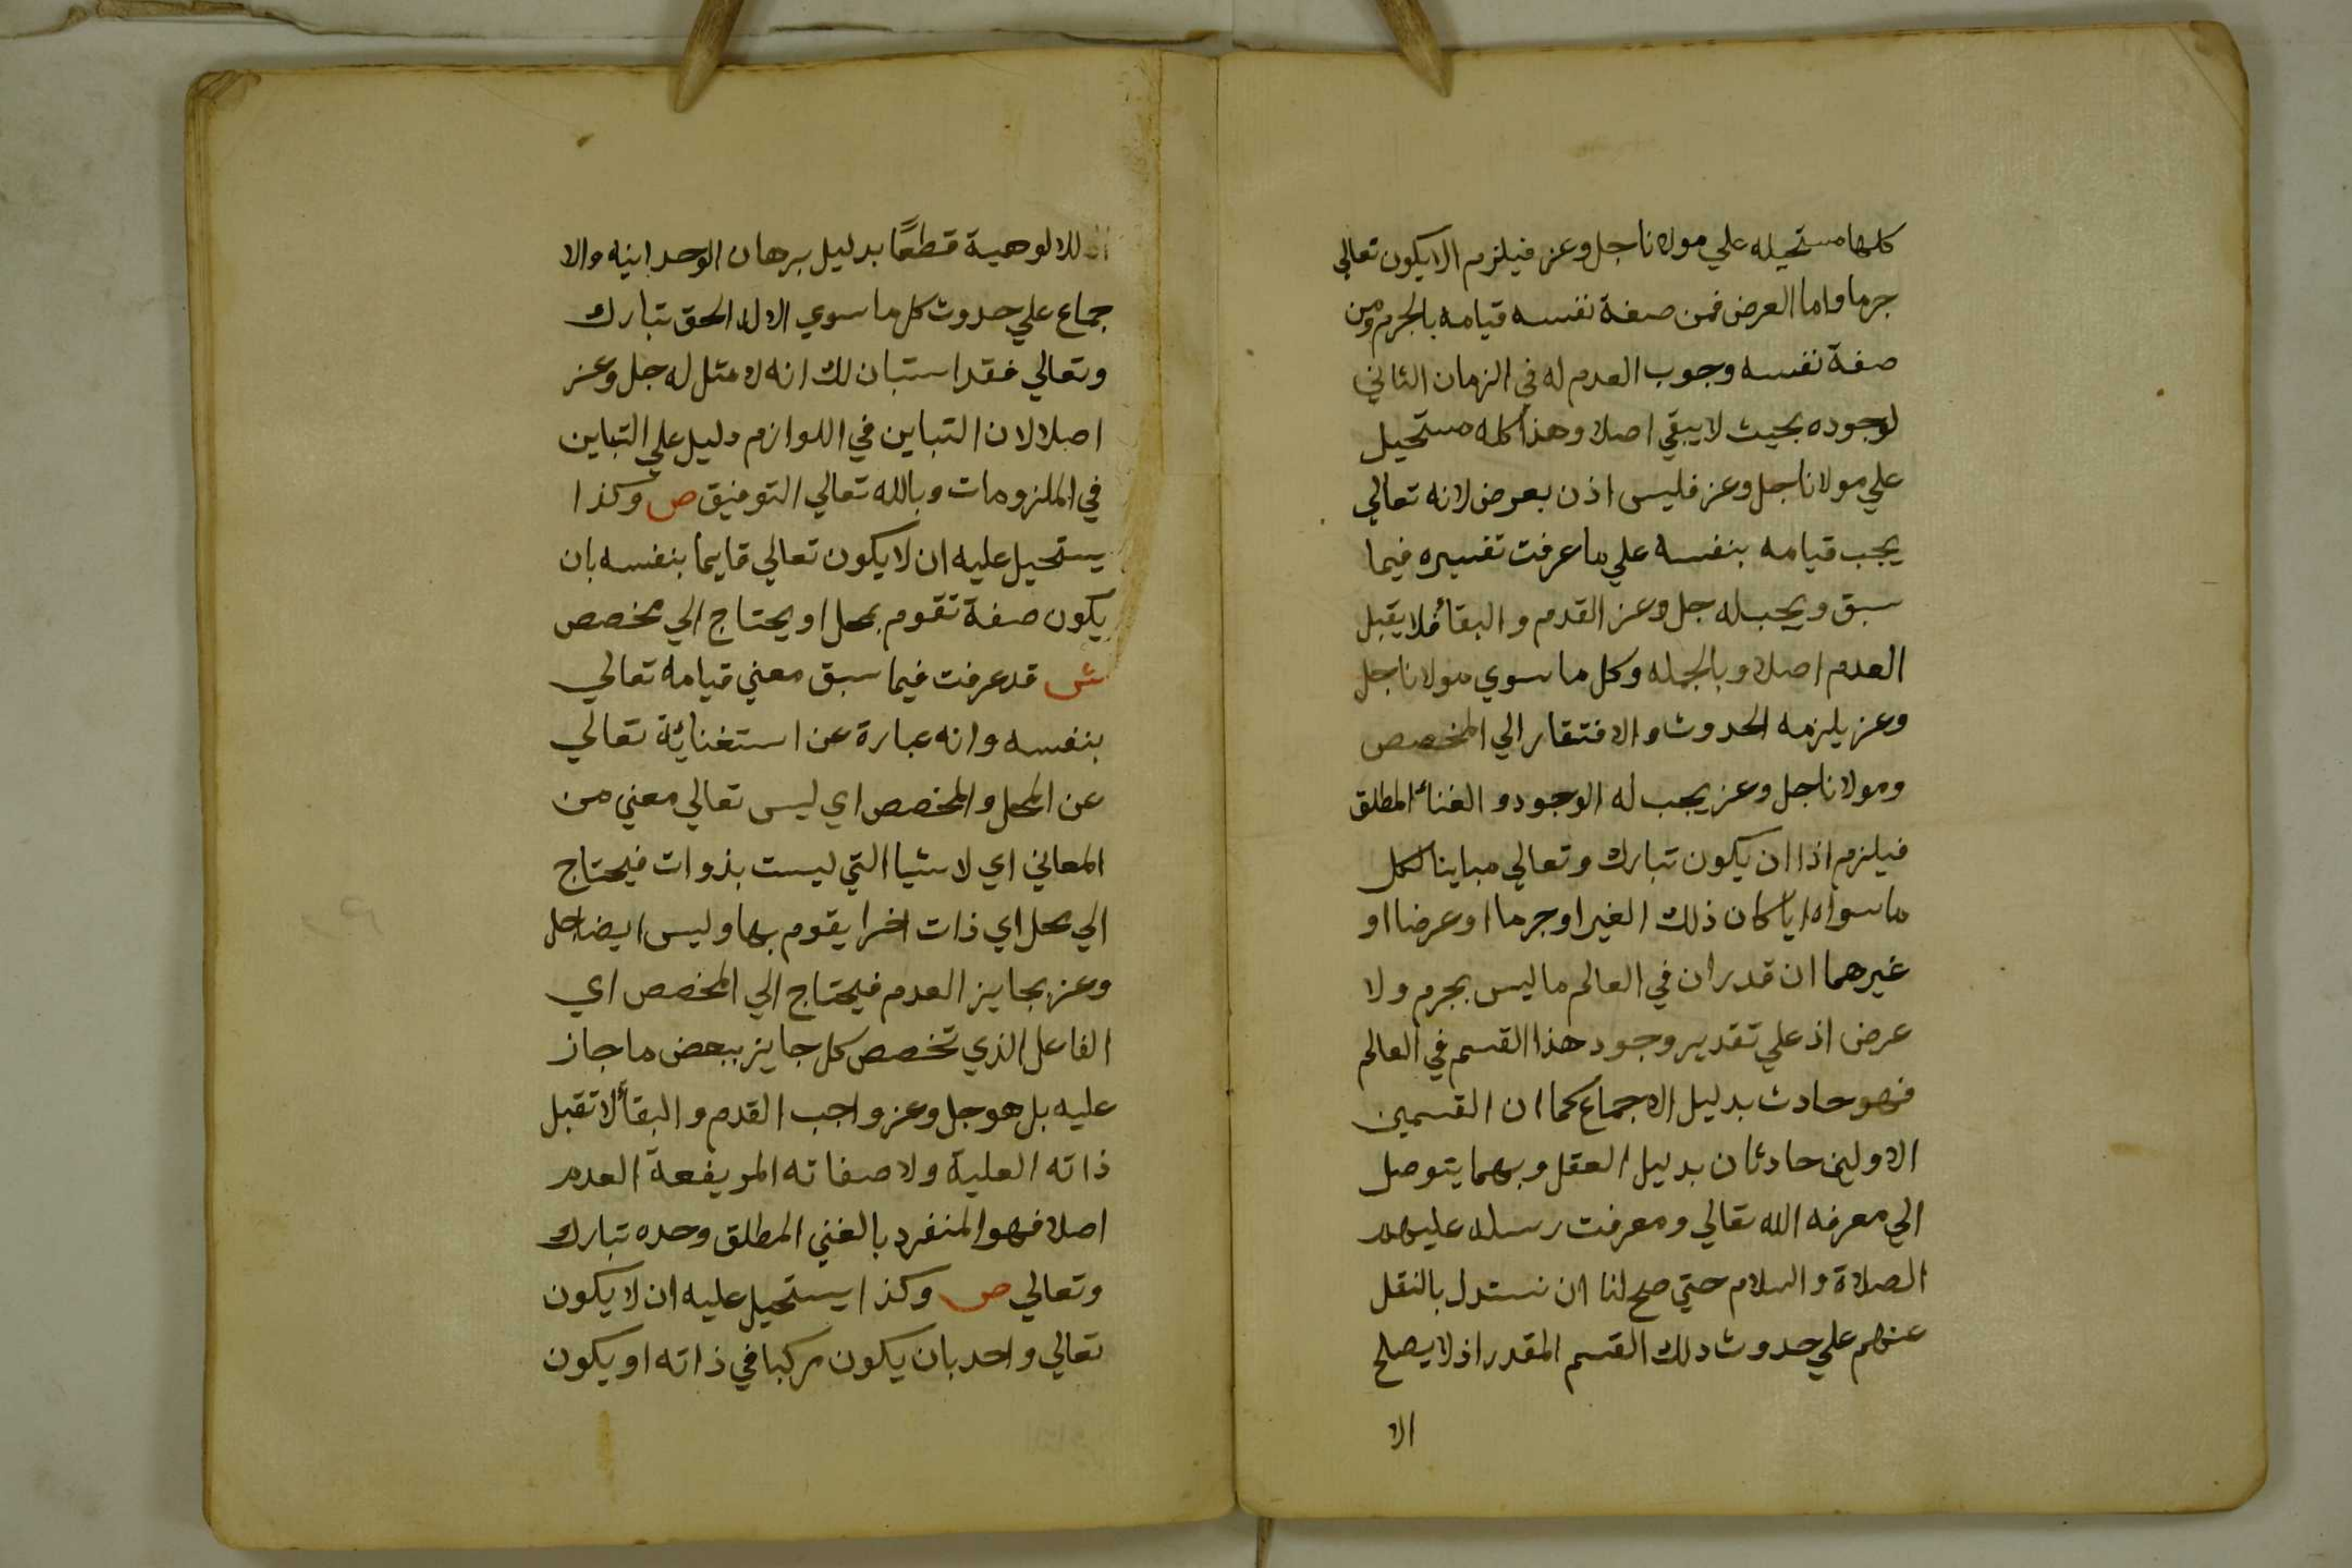 كلها مستحيله علي مولانا جل وعز فيلزم الا يكون تعالي
جرما واما العرض فمن صفة نفسه قيامه بالجرم ومن
صفة نفسه وجوب العدم له في الزمان الثاني
لوجوده بحيث لا يبقي اصلا وهذا كله مستحيل
علي مولانا جل وعز فليس اذن بعرض لانه تعالي
يجب قيامه بنفسه علي ما عرفت تفسيره فيما
سبق ويجب له جل وعز القدم والبقاء فلا يقبل
العدم اصلا وبالجمله وكل ما سوي مولانا جل
وعز يلزمه الحدوث والافتقار الي المخصص
ومولانا جل وعز يجب له الوجود والغناء المطلق
فيلزم اذا ان يكون تبارك وتعالي مباينا لكل
ما سواه ايا كان ذلك الغير او جرما او عرضا او
غيرهما ان قدر ان في العالم ما ليس بجرم ولا
عرض اذ علي تقدير وجود هذا القسم في العالم
فهو حادث بدليل الاجماع كما ان القسمين
الاولين حادثان بدليل العقل وبهما يتوصل
الي معرفه الله تعالي ومعرفت رسله عليهم
الصلاة والسلام حتي صح لنا ان نستدل بالنقل
عنهم علي حدوث دلك القسم المقدر اذ لا يصلح
الا
للالوهية قطعًا بدليل برهان الوحدانيه والا
جماع علي حدوث كل ما سوي الاله الحق تبارك
وتعالي فقد استبان لك انه لا مثل له جل وعز
اصلا لان التباين في اللوازم دليل علي التباين
في الملزومات وبالله تعالي التوفيق ص وكذا
يستحيل عليه ان لا يكون تعالي قايما بنفسه بان
يكون صفة تقوم بمحل او يحتاج الي مخصص
ش قد عرفت فيما سبق معني قيامه تعالي
بنفسه وانه عبارة عن استغنائة تعالي
عن المحل والمخصص اي ليس تعالي معني من
المعاني اي لاشيا التي ليست بذوات فيحتاج
الي محل اي ذات اخرا يقوم بها وليس ايضا جل
وعز بجايز العدم فيحتاج الي المخصص اي
الفاعل الذي تخصص كل جايز ببعض ما جاز
عليه بل هو جل وعز واجب القدم والبقاء لا تقبل
ذاته العلية ولا صفاته المريفعة العدم
اصلا فهو المنفرد بالغني المطلق وحده تبارك
وتعالي ص وكذا يستحيل عليه ان لا يكون
تعالي واحد بان يكون مركبا في ذاته او يكون